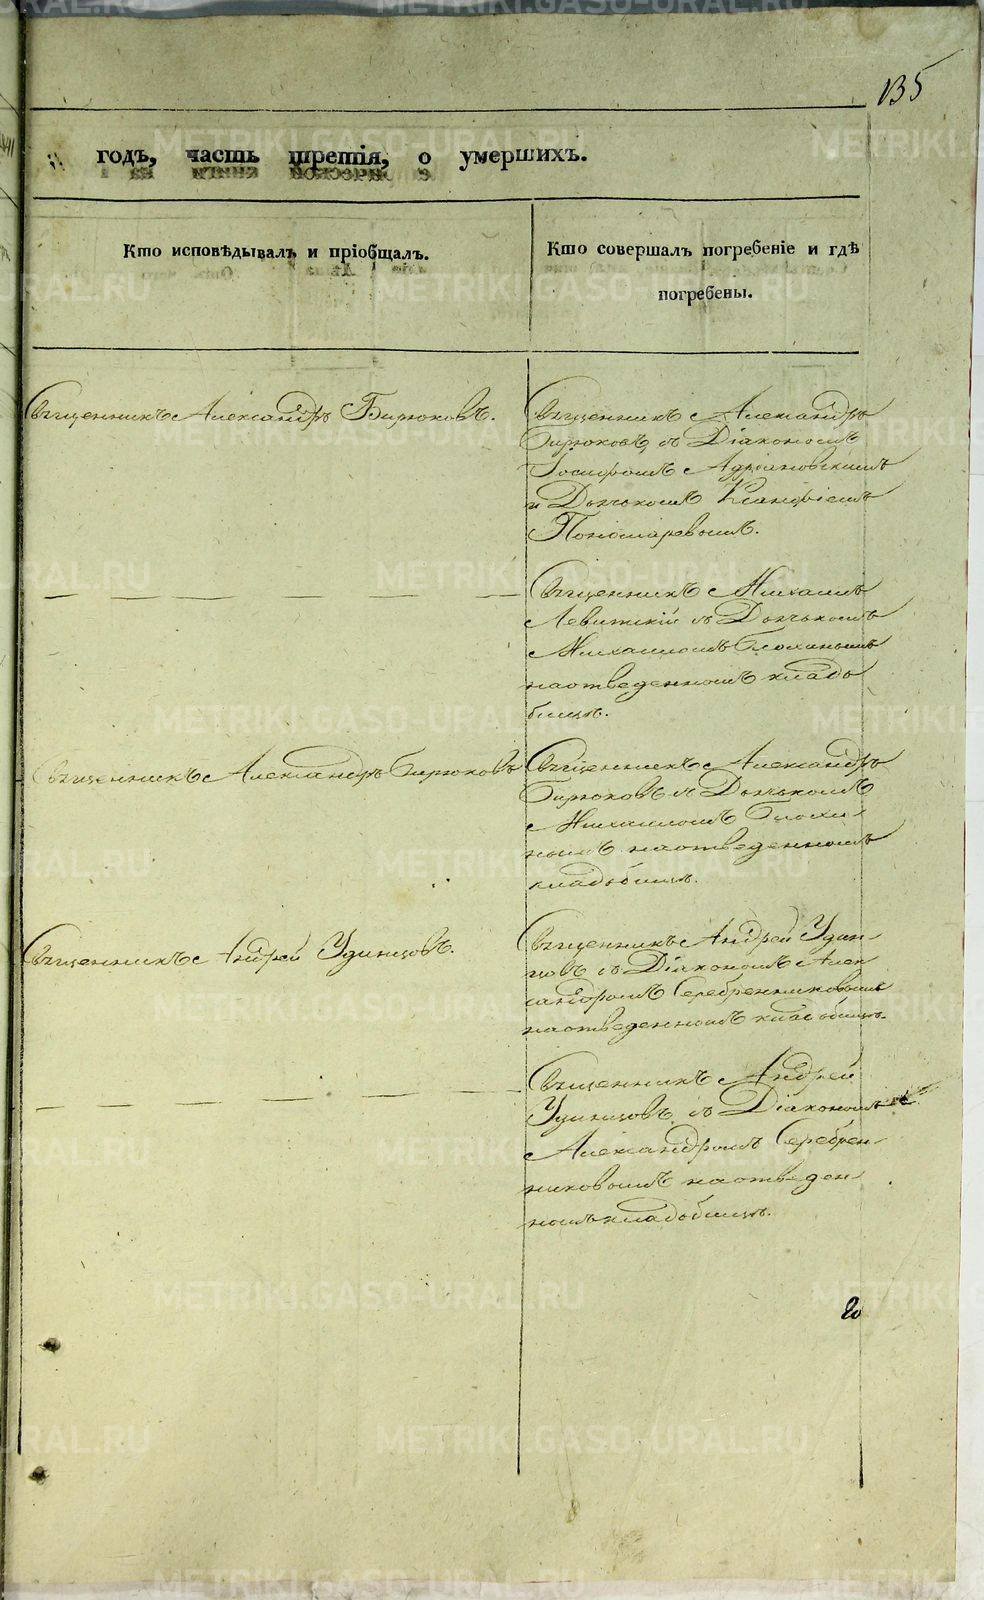 135
годъ, часть третія, о умершихъ.
Кто исповѣдывалъ и пріобщалъ.
Кто совершалъ погребеніе и гдѣ
погребены.
Священникъ Александръ Бирюковъ.
Священникъ Александръ
Бирюковъ съ Діакономъ
Іосифомъ Адріановскимъ
и Дьячькомъ
Пономаревымъ.
Священникъ Михаилъ
Левитскій съ Дьячькомъ
Михаиломъ Блохинымъ
на отведенномъ кладъ
бищѣ.
Священникъ Александръ Бирюковъ
Священникъ Александръ
Бирюковъ съ Дьячькомъ
Михаиломъ Блохи-
нымъ на отведенномъ
кладбищѣ.
Священникъ Андрей Удинцовъ.
Священникъ Андрей Удин-
цовъ съ Діакономъ Алек
сандромъ Серебренниковымъ
на отведенномъ кладбищѣ.
Священникъ Андрей
Удинцовъ съ Діакономъ
Александромъ Серебрен-
никовымъ на отведен
номъ кладбищѣ.
METRIKI.GASO-URAL.RU